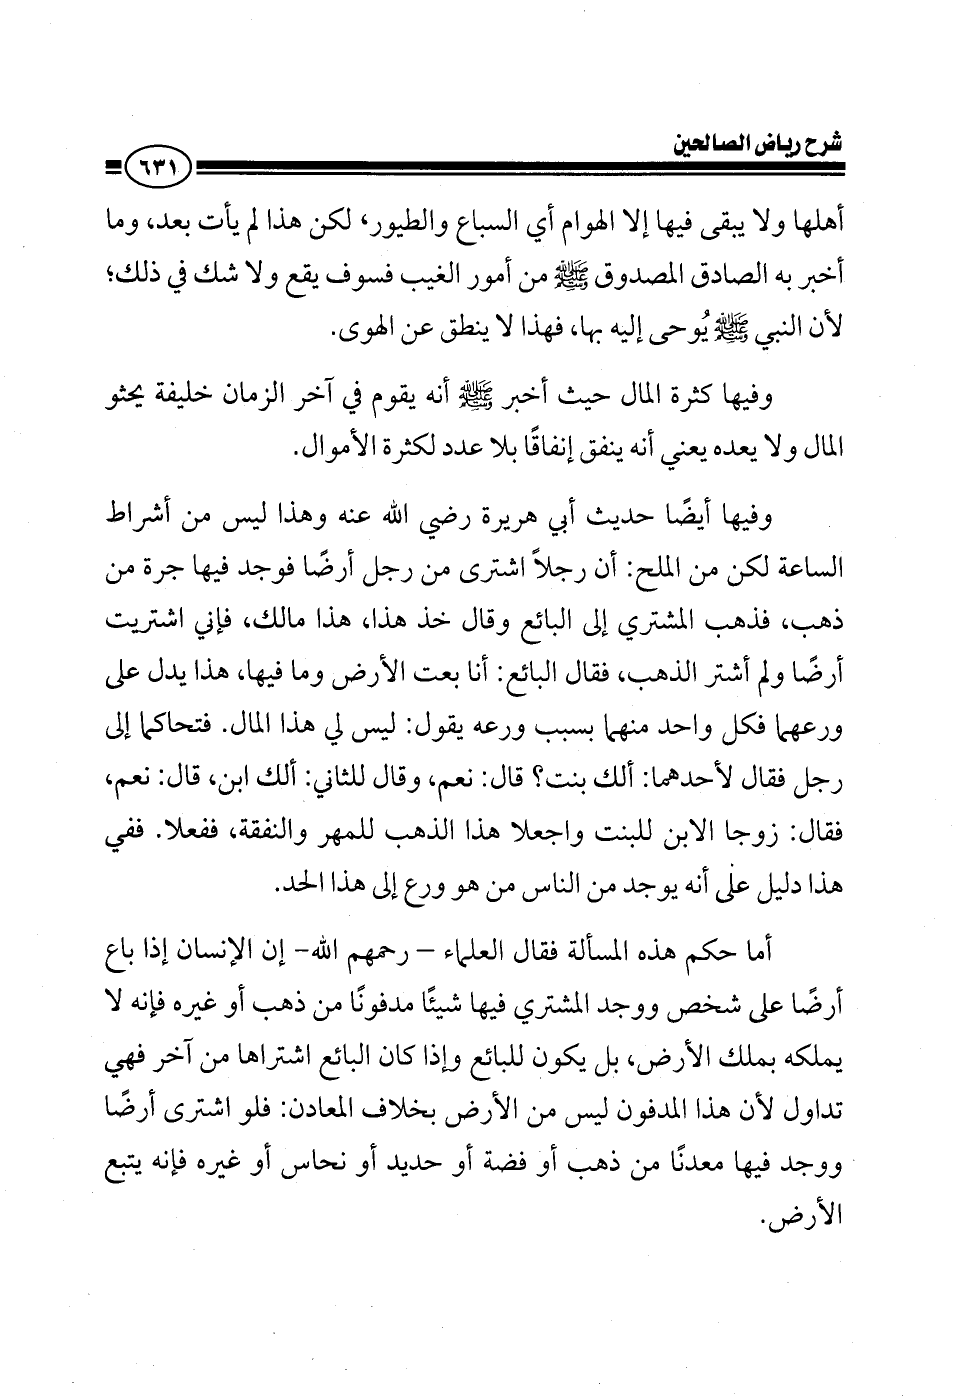 شرح رياض الصالحين
٦٣١
أهلها ولا يبقى فيها إلا الهوام أي السباع والطيور، لكن هذا لم يأت بعد، وما
أخبر به الصادق المصدوق ﷺ من أمور الغيب فسوف يقع ولا شك في ذلك؛
لأن النبي ﷺ يُوحى إليه بها، فهذا لا ينطق عن الهوى.
وفيها كثرة المال حيث أخبر ﷺ أنه يقوم في آخر الزمان خليفة يحثو
المال ولا يعده يعني أنه ينفق إنفاقًا بلا عدد لكثرة الأموال.
وفيها أيضًا حديث أبي هريرة رضي الله عنه وهذا ليس من أشراط
الساعة لكن من الملح: أن رجلاً اشترى من رجل أرضًا فوجد فيها جرة من
ذهب، فذهب المشتري إلى البائع وقال خذ هذا، هذا مالك، فإني اشتريت
أرضًا ولم أشتر الذهب، فقال البائع: أنا بعت الأرض وما فيها، هذا يدل على
ورعهما فكل واحد منهما بسبب ورعه يقول: ليس لي هذا المال. فتحاكما إلى
رجل فقال لأحدهما: ألك بنت؟ قال: نعم، وقال للثاني: ألك ابن، قال: نعم،
فقال: زوجا الابن للبنت واجعلا هذا الذهب للمهر والنفقة، ففعلا. ففي
هذا دليل على أنه يوجد من الناس من هو ورع إلى هذا الحد.
أما حكم هذه المسألة فقال العلماء – رحمهم الله- إن الإنسان إذا باع
أرضًا على شخص ووجد المشتري فيها شيئًا مدفونًا من ذهب أو غيره فإنه لا
يملكه بملك الأرض، بل يكون للبائع وإذا كان البائع اشتراها من آخر فهي
تداول لأن هذا المدفون ليس من الأرض بخلاف المعادن: فلو اشترى أرضًا
ووجد فيها معدنًا من ذهب أو فضة أو حديد أو نحاس أو غيره فإنه يتبع
الأرض.